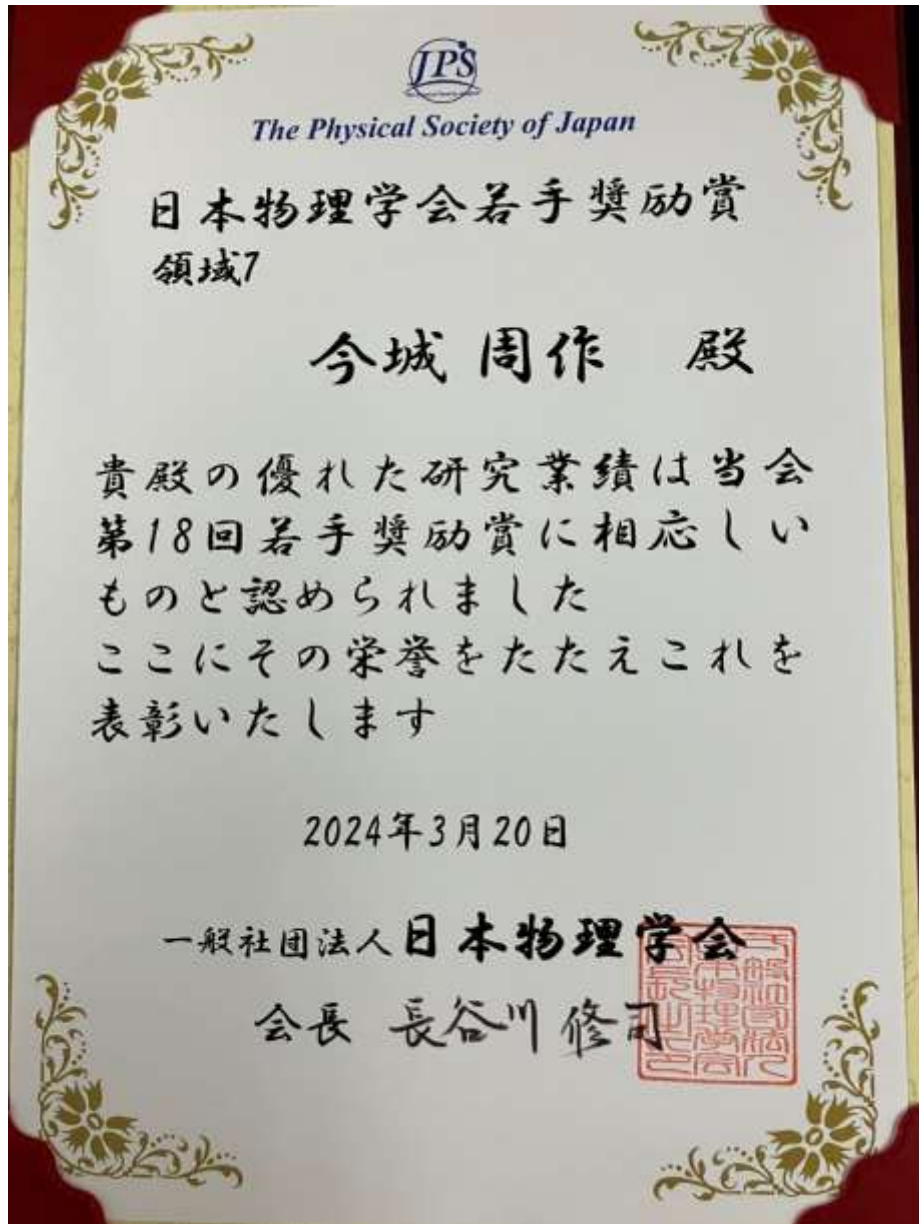 JPS
The Physical Society of Japan
日本物理学会若手奨励賞
領域7
今城 周作 殿
貴殿の優れた研究業績は当会
第18回若手奨励賞に相応しい
ものと認められました
ここにその栄誉をたたえこれを
表彰いたします
2024年3月20日
一般社団法人日本物理学会
会長 長谷川 修司